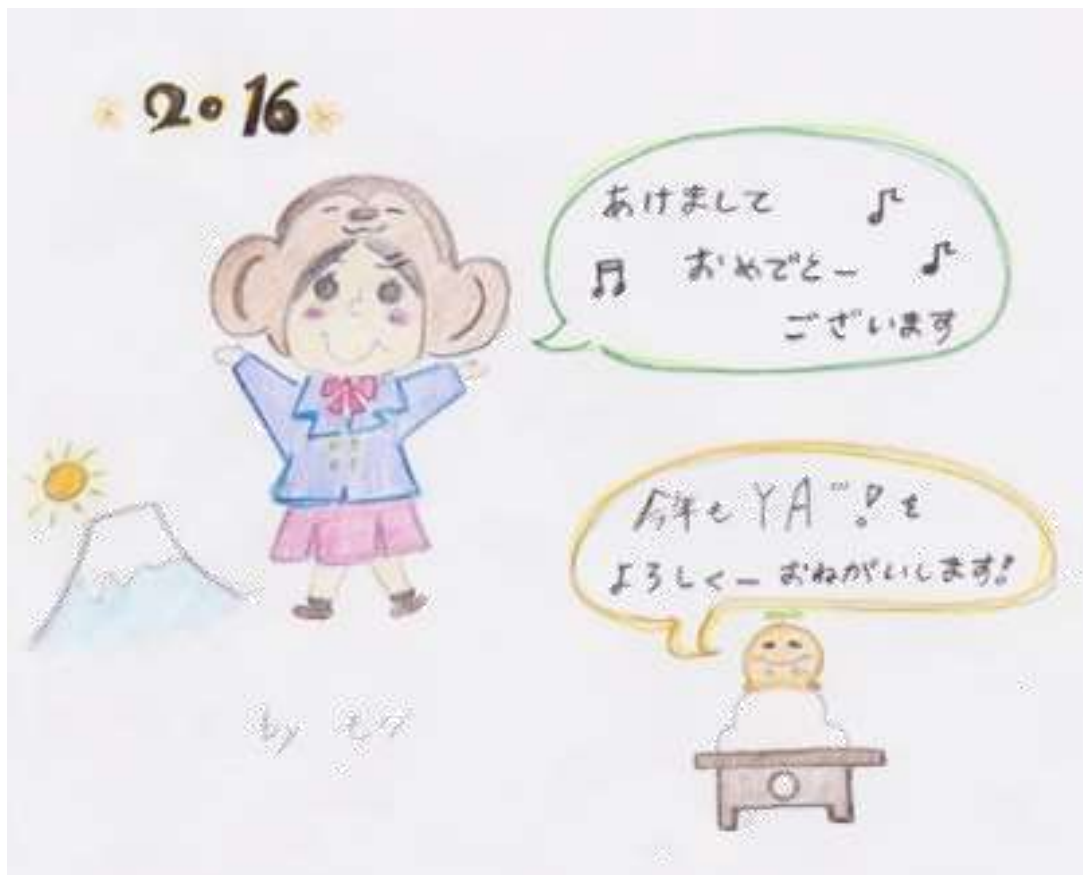 2016
あけまして
おめでとー
ございます
今年も YA"!を
よろしくー おねがいします!
by